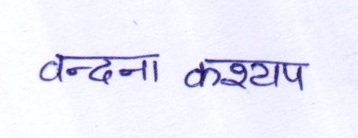 वन्दना कश्यप